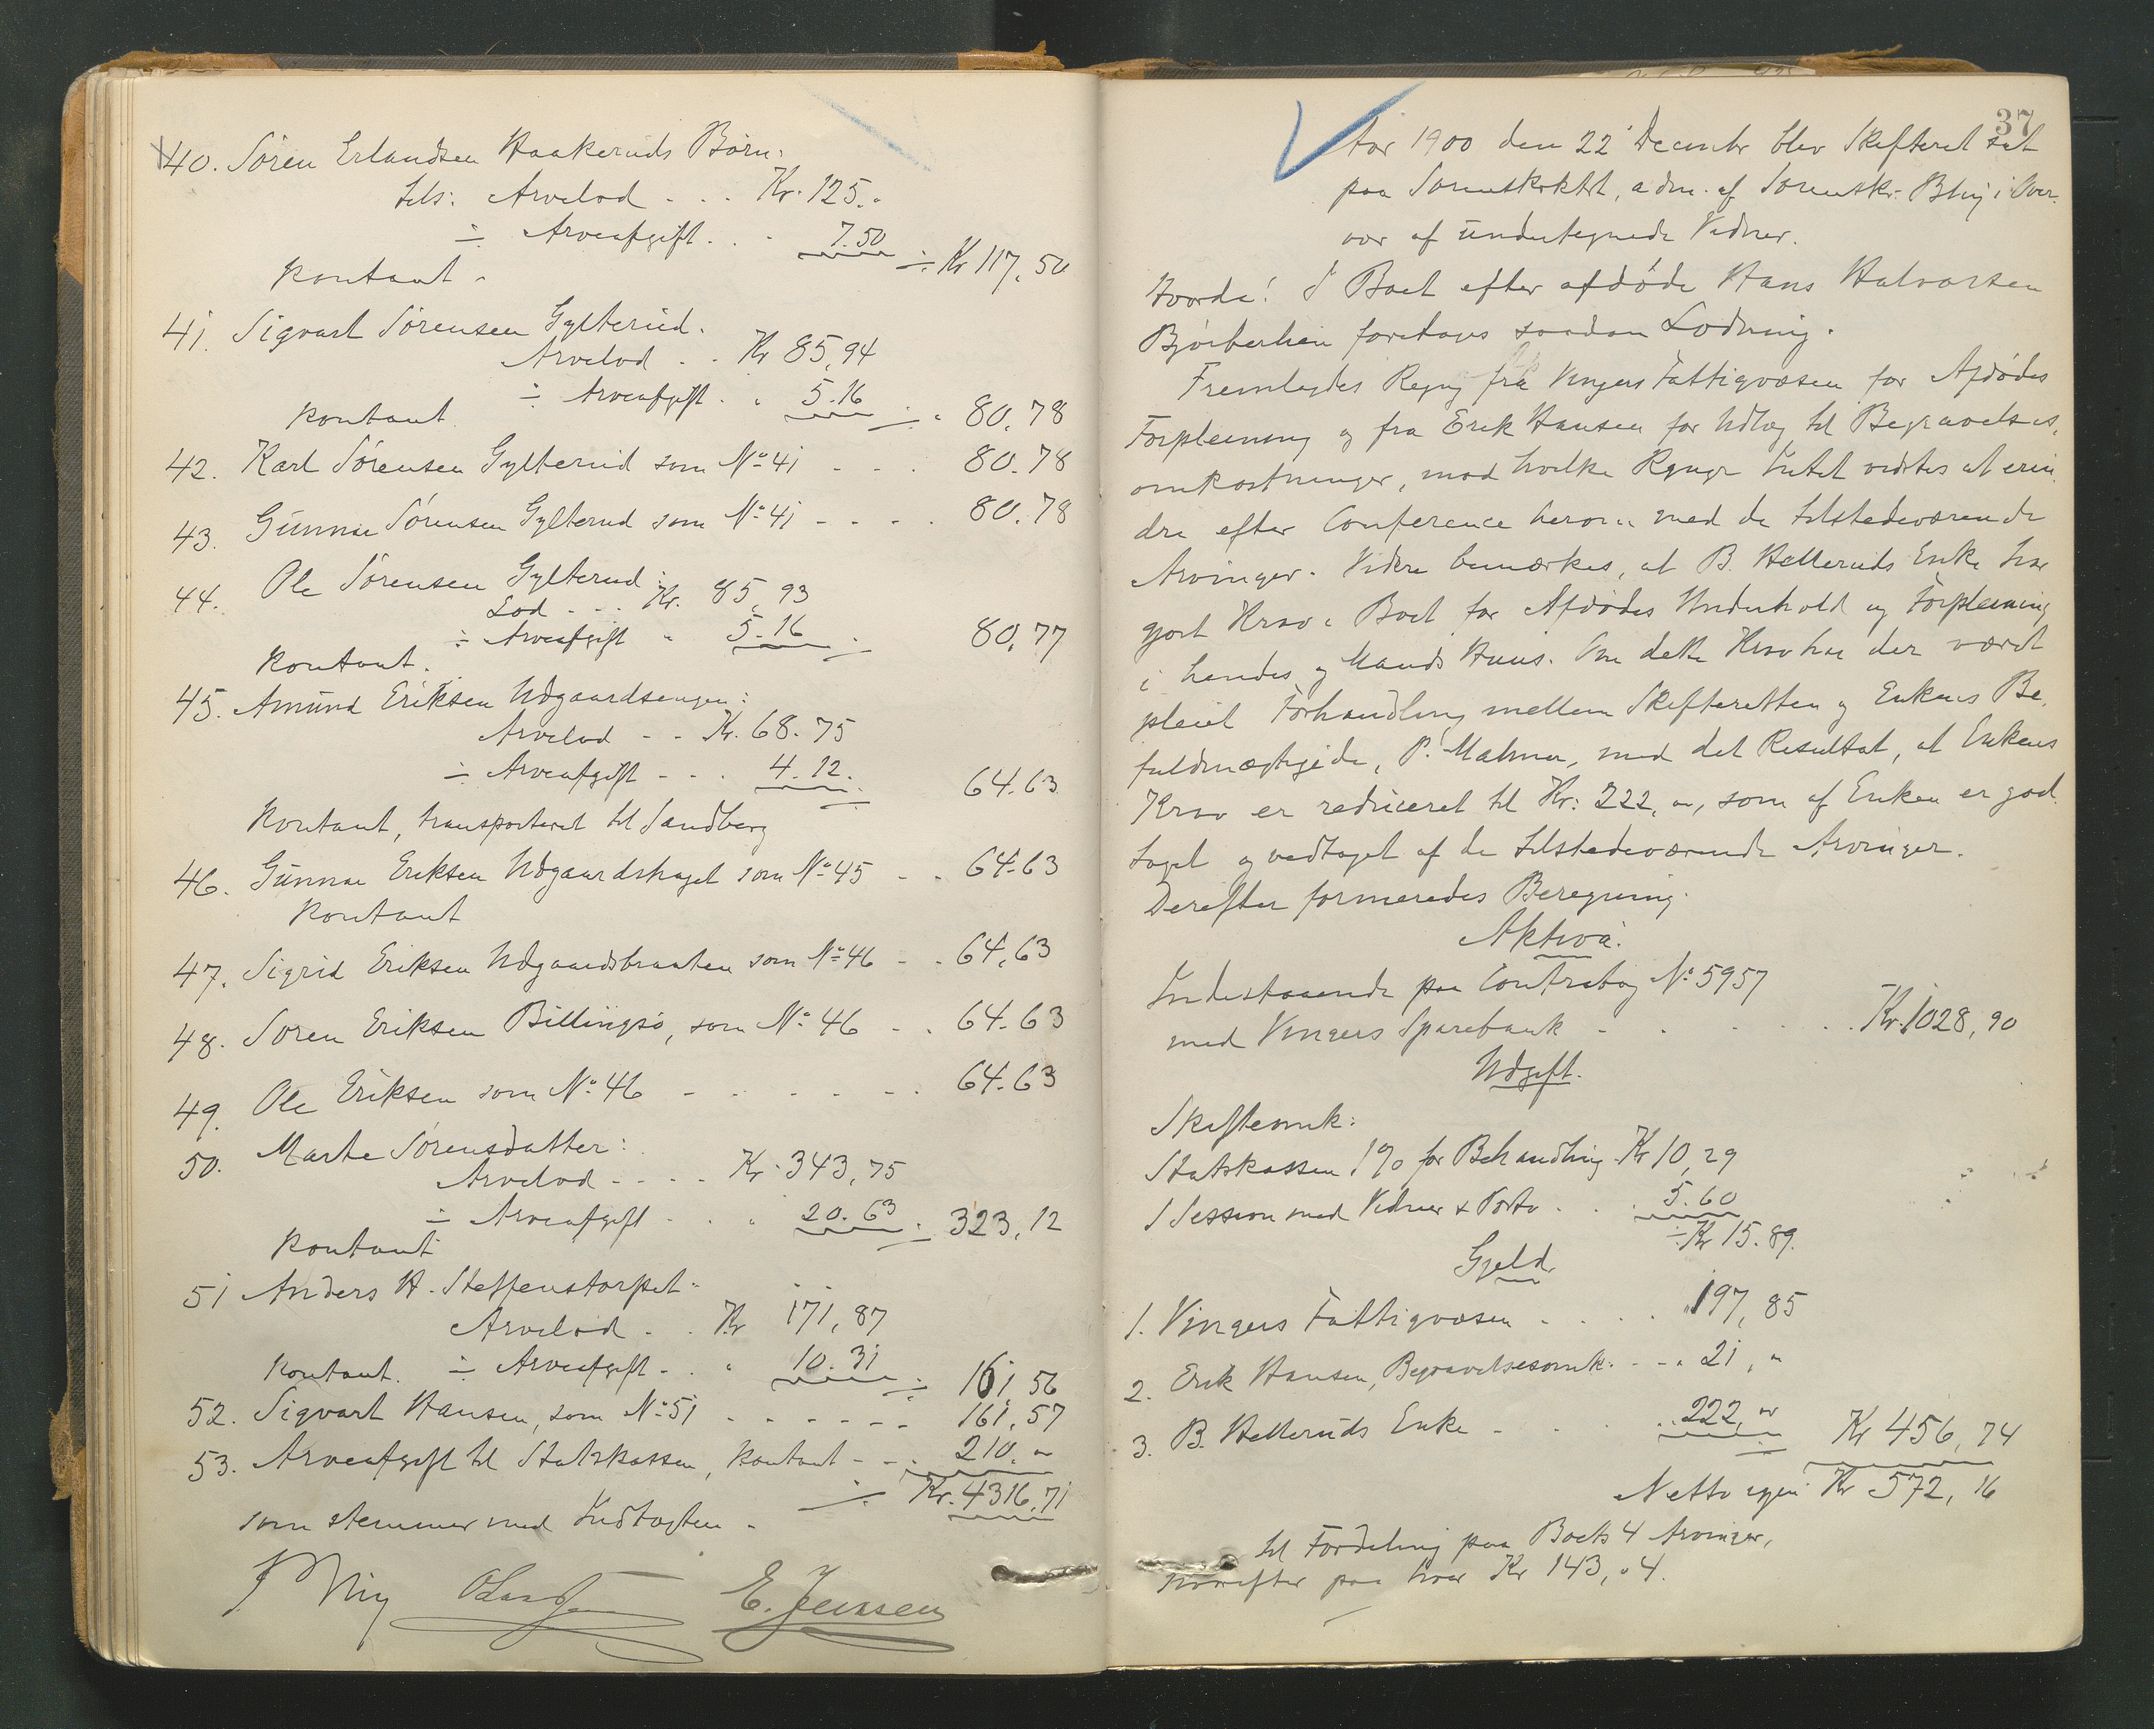 40. Sören Erlandsen Haakeruds Børn:
tils: Arvelod - . . Kr. 125. "
÷ Arveafgift . . - 7.50
Kontant - ÷ Kr 117,50
41. Sigvart Sørensen Gylterud.
Arvelod . . Kr 85,94
÷ Arveafgift . " 5.16
Kontant. ÷ " 80,78
42. Karl Sørensen Gylterud som No 41 - - . 80.78
43. Gunnar Sørensen Gylterud som No 41 - - - . 80.78
44. Ole Sørensen Gylterud:
Lod . - . Kr. 85,93
÷ Arveafgift " 5.16
Kontant. 80,77
45. Amund Eriksen Udgaardsengen:
Arvelod - - Kr. 68.75
÷ Arveafgift - - . 4.12.
64.63
Kontant, transporteret til Sandberg
46. Gunnar Eriksen Udgaardshaget som No 45 - . 64.63
Kontant
47. Sigrid Eriksen Udgaardsbraaten som No 46 - . 64,63
48. Soren Eriksen Billingsø, som No 46 - . 64.63
49. Ole Eriksen som No 46 - - - - - . 64.63
50. Marte Sørensdatter:
Arvelod - - . . Kr. 343,75
÷ Arveafgift - . . " 20.63
Kontant ÷ 323,12
51 Anders H. Steffenstorpet:
Arvelod . . Kr 171,87
Kontant. ÷ Arveafgift - . " 10.31
÷ 161,56
52. Sigvart Hansen, som No 51 - - - - - - 161,57
53. Arveafgift til Statskassen, kontant - - . 210. "
÷ Kr. 4316,71
som stemmer med Indtægten.
E. Jenssen
37
Aar 1900 den 22' Decembr blev Skifteret sat
paa Sorenskrktrt, adm. af Sorenskr. Bhig i Over-
vær af undertegnede Vidner.
Hvorda! I Boet efter afdøde Hans Halvorsen
Bjørberhien foretages saadan Lodning.
Fremlagdes Regng fra Vingers Fattigvæsen for Afdødes
Forpleining og fra Erik Hansen for Udlæg til Begravelses-
omkostninger, mod hvilke Regngr Intet vidstes at erin-
dre efter Conference herom med de tilstedeværende
Arvinger. Videre bemærkes, at B. Helleruds Enke har
gjort Krav i Boet for Afdødes Underhold og Forpleining
i hendes og Mands Huus. Om dette Krav har der været
pleiet Forhandling mellem Skifteretten og Enkens Be-
fuldmægtigede, P. Malmer, med det Resultat, at Enkens
Krav er reduceret til Kr: 222, ", som af Enken er god-
taget og vedtaget af de tilstedeværende Arvinger.
Derefter formeredes Beregning.
Aktiva.
Indestaaende paa Contrabog No 5957
med Vingers Sparebank - - . . . . Kr. 1028,90
Udgift.
Skifteomk:
Statskassen 1% for Behandling Kr 10,29
1 Session med Vidner & Porto . . . 5.60
÷ Kr 15.89.
Gjeld
1. Vingers Fattigvæsen . . . . " 197,85
2. Erik Hansen, Begravelsesomk: - - " 21, "
3. B. Helleruds Enke - . . . . 222, "
÷ Kr 456,74
Netto igjen Kr 572,16
til Fordeling paa Boets 4 Arvinger,
hvorefter paa hver Kr 143,04.